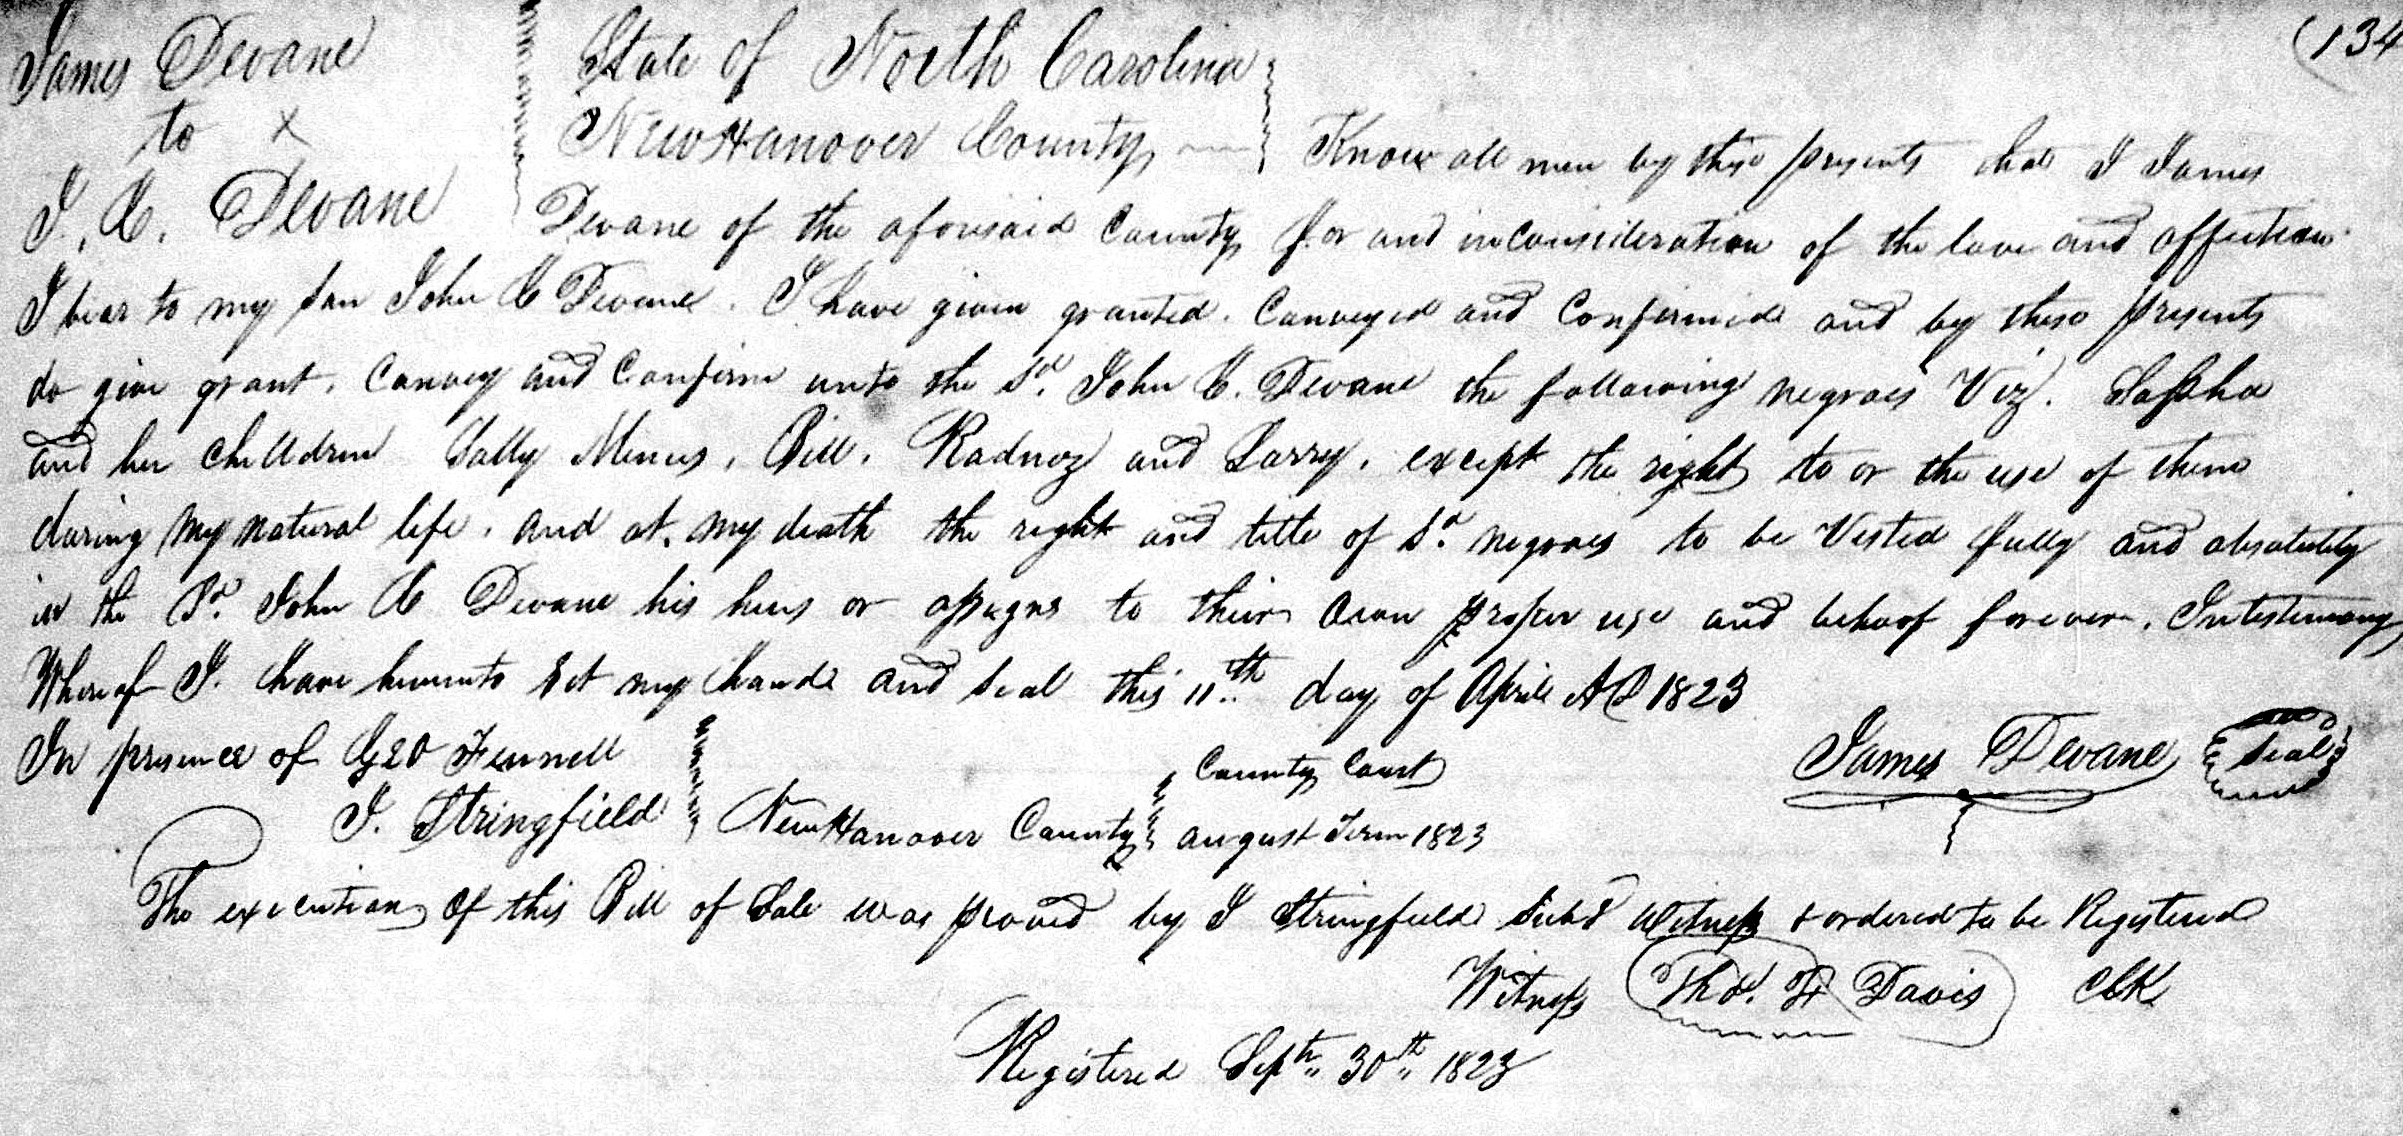 (134
James Devane
to x
J. C. Devane
State of North Carolina
New Hanover County
Know all men by these presents that I James
Devane of the aforesaid County for and in consideration of the love and affection
I bear to my son John C Devane. I have given granted. Conveyed and Confirmed and by these presents
do give grant. Convey and Confirm unto the sd. John C. Devane the following negroes Viz. Sapha
and her childdren Sally Mincy, Bill, and Larry, except the right to or the use of them
during my natural life, and at my death the right and title of sd. negroes to be Vested fully and absolutely
in the Sd. John C Devane his heirs or assigns to their own proper use and behoof forever. In testimony
Whereof I. have hereunto set my hand and seal this 11th day of April AD 1823
In presence of Geo Fennell
J. Stringfield
James Devane Seal
New Hanover County
County Court
August Term 1823
The execution of this Bill of Sale was proved by J Stringfield Subs Witness & ordered to be Registered
Witness Thos. F Davis Clk
Registered Septr. 30th 1823